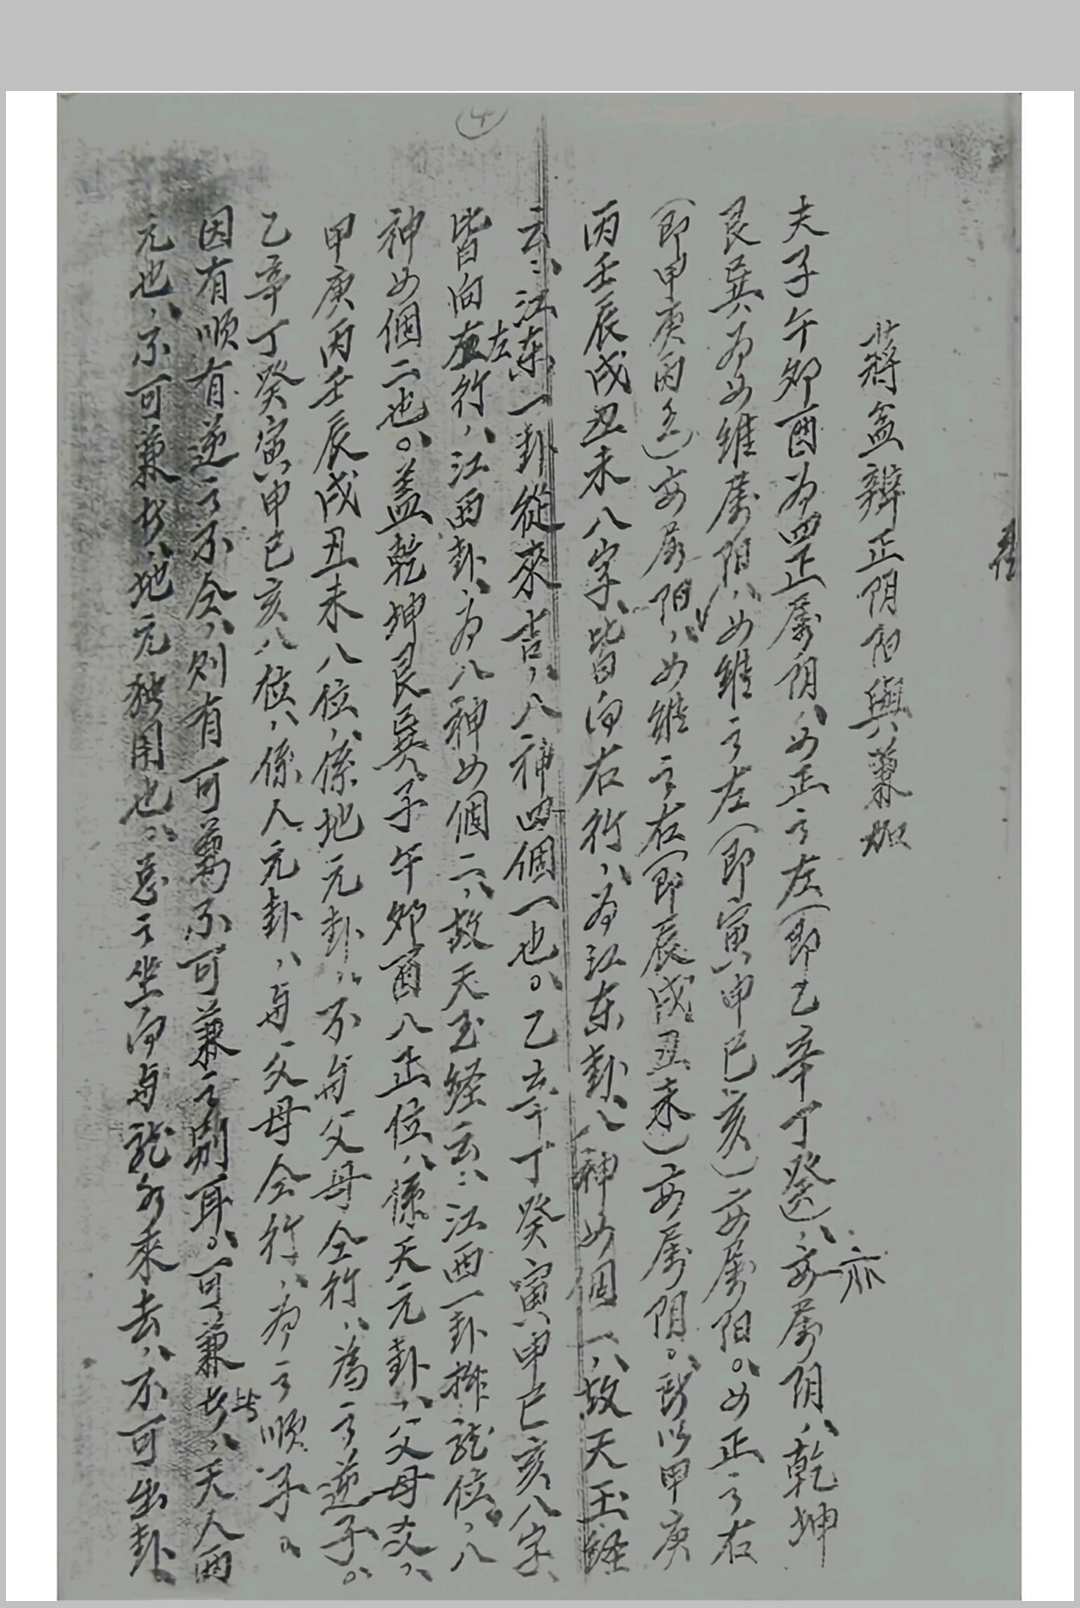 ④
蔣盘辨正阴阳與兼加
夫子午卯酉为四正属阴、四正之左（即乙辛丁癸）、亦属阴、乾坤
艮巽为四維属阳、四維之左（即寅申巳亥）亦属阳。四正之右
（即甲庚丙壬）亦属阳、四維之右（即辰戌丑未）亦属阴。所以甲庚
丙壬辰戌丑未八字、皆向右行、为江东卦、八神四個一、故天玉経
云：江东一卦從來吉、八神四個一也。乙辛丁癸寅申巳亥八字、
皆向左行、江西卦、为八神四個二、故天玉経云：江西一卦排龙位、八
神四個二也。盖乾坤艮巽子午卯酉八正位、係天元卦、父母爻、
甲庚丙壬辰戌丑未八位、係地元卦、不与父母仝行、為之逆子。
乙辛丁癸寅申巳亥八位、係人元卦、与父母仝行、为之順子。
因有順有逆之不仝、則有可兼不可兼之別耳。可兼者、皆天人両
元也、不可兼者、地元独用也。总之坐向与龙水来去、不可出卦、